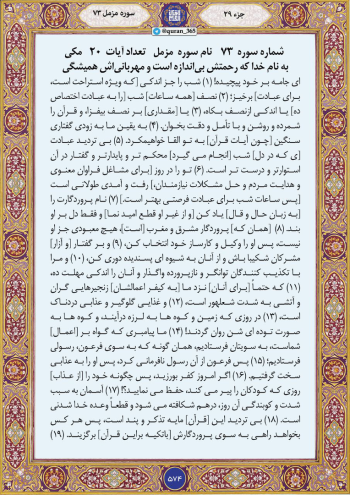 جزء ۲۹
سوره مزمل ۷۳
@quran_365
شماره سوره ۷۳ نام سوره مزمل تعداد آیات ۲۰ مکی
به نام خدا که رحمتش بی‌اندازه است و مهربانی‌اش همیشگی
ای جامه بر خود پیچیده! (۱) شب را جز اندکی [که ویژه استراحت است،
برای عبادت] برخیز؛ (۲) نصف [همه ساعات] شب [را به عبادت اختصاص
ده] یا اندکی از نصف بکاه، (۳) یا [مقداری] بر نصف بیفزا، و قرآن را
شمرده و روشن و با تأمل و دقت بخوان. (۴) به یقین ما به زودی گفتاری
سنگین [چون آیات قرآن] به تو القا خواهیم‌کرد. (۵) بی تردید عبادت
[ی که در دل] شب [انجام می گیرد] محکم تر و پایدارتر و گفتار در آن
استوارتر و درست تر است. (۶) تو را در روز [برای مشاغل فراوان معنوی
و هدایت مردم و حل مشکلات نیازمندان،] رفت و آمدی طولانی است
[پس ساعات شب برای عبادت فرصتی بهتر است.] (۷) نام پروردگارت را
[به زبان حال و قال] یاد کن [و از غیر او قطع امید نما] و فقط دل بر او
بند. (۸) [همان که] پروردگار مشرق و مغرب [است]، هیچ معبودی جز او
نیست، پس او را وکیل و کارساز خود انتخاب کن، (۹) و بر گفتار [و آزار]
مشرکان شکیبا باش و از آنان به شیوه ای پسندیده دوری کن، (۱۰) و مرا
با تکذیب کنندگان توانگر و نازپرورده واگذار و آنان را اندکی مهلت ده،
(۱۱) که حتماً [برای آنان] نزد ما [به کیفر اعمالشان] زنجیرهایی گران
و آتشی به شدت شعله‌ور است، (۱۲) و غذایی گلوگیر و عذابی دردناک
است، (۱۳) در روزی که زمین و کوه ها به لرزه درآیند، و کوه ها به
صورت توده ای شن روان گردند!! (۱۴) ما پیامبری که گواه بر [اعمال]
شماست، به سویتان فرستادیم، همان گونه که به سوی فرعون، رسولی
فرستادیم؛ (۱۵) پس فرعون از آن رسول نافرمانی کرد، پس او را به عذابی
سخت گرفتیم. (۱۶) اگر امروز کفر بورزید، پس چگونه خود را [از عذاب]
روزی که کودکان را پیر می کند، حفظ می نمایید؟! (۱۷) آسمان به سبب
شدت و کوبندگی آن روز، درهم شکافته می شود و قطعاً وعده خدا شدنی
است. (۱۸) بی تردید این [قرآن] مایه تذکر و پند است، پس هر کس
بخواهد راهی به سوی پروردگارش [باتکیه براین قرآن] برگزیند. (۱۹)
۵۷۴